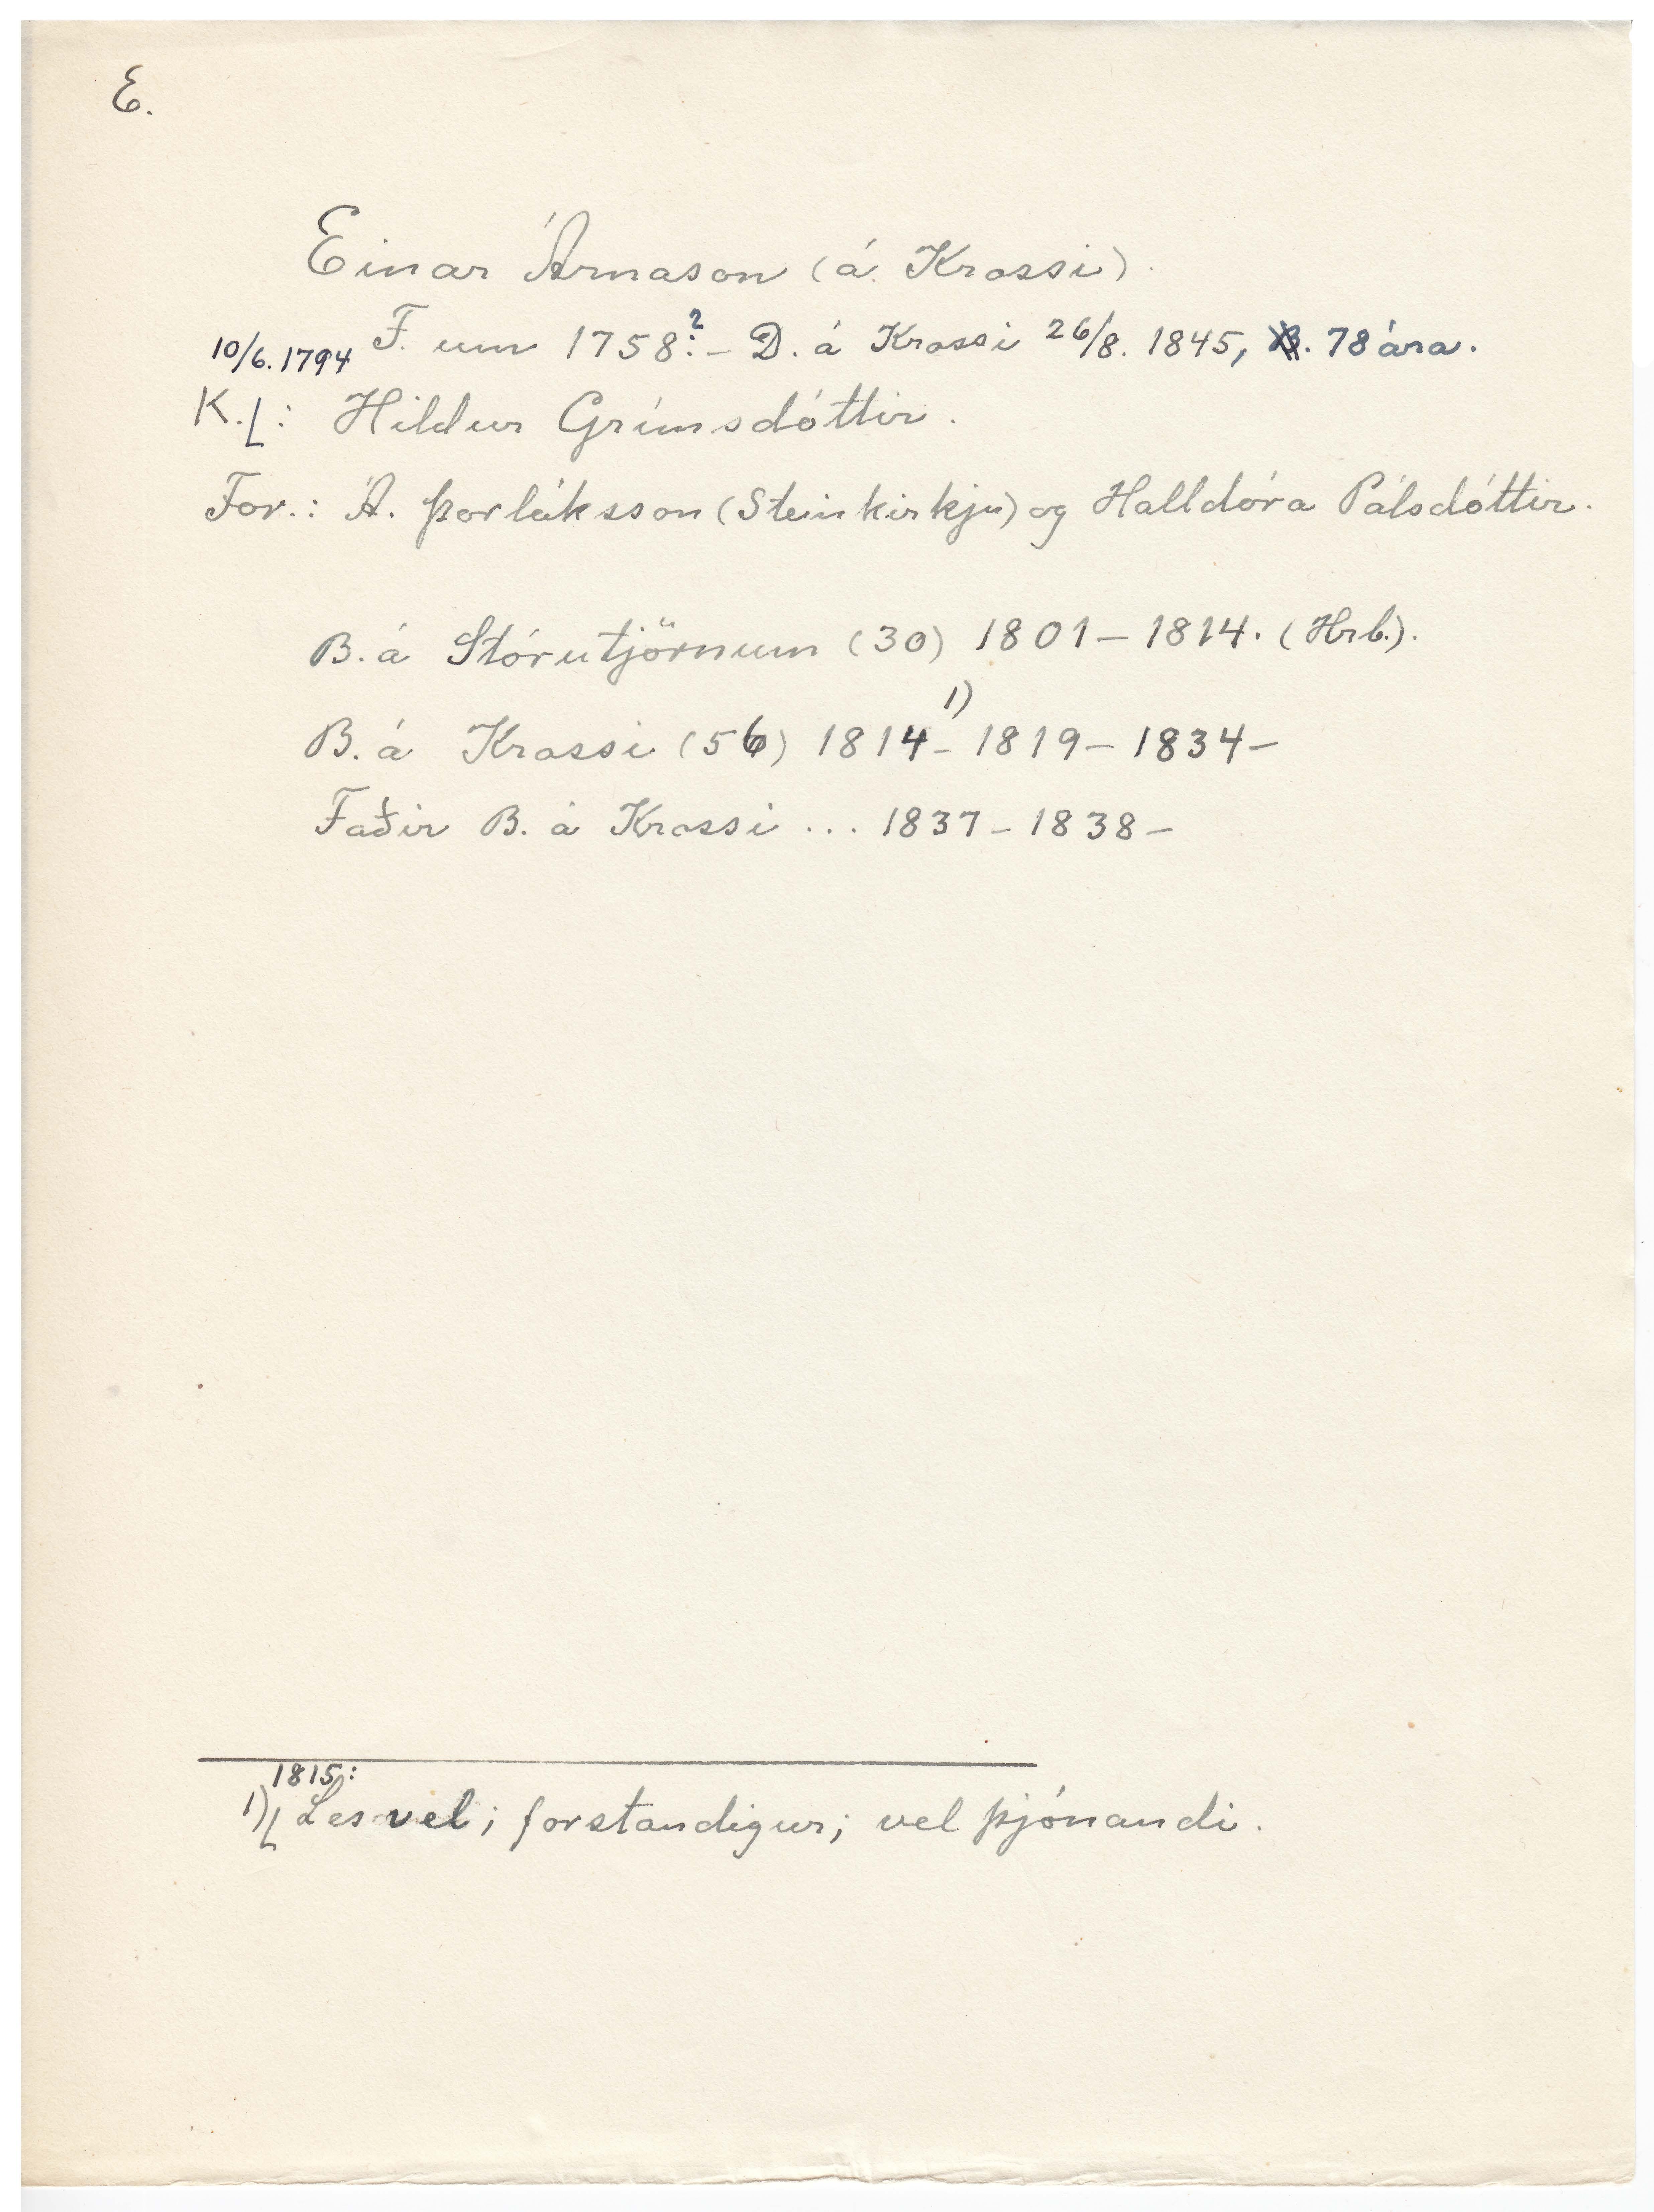 E.
Einar Árnason (á Krossi).
F. um 1758?.- D. á Krossi 26/8. 1845, 78 ára.
10/6. 1794
K.: Hildur Grímsdóttir.
For.: Á. Þorláksson (Steinkirkju) og Halldóra Pálsdóttir.
B. á Stórutjörnum (30) 1801-1814. (Hrb.).
B. á Krossi (56) 1814- 1) 1819-1834-
Faðir B. á Krossi ... 1837-1838-
1815:
1) Les vel; forstandigur; vel þjónandi.